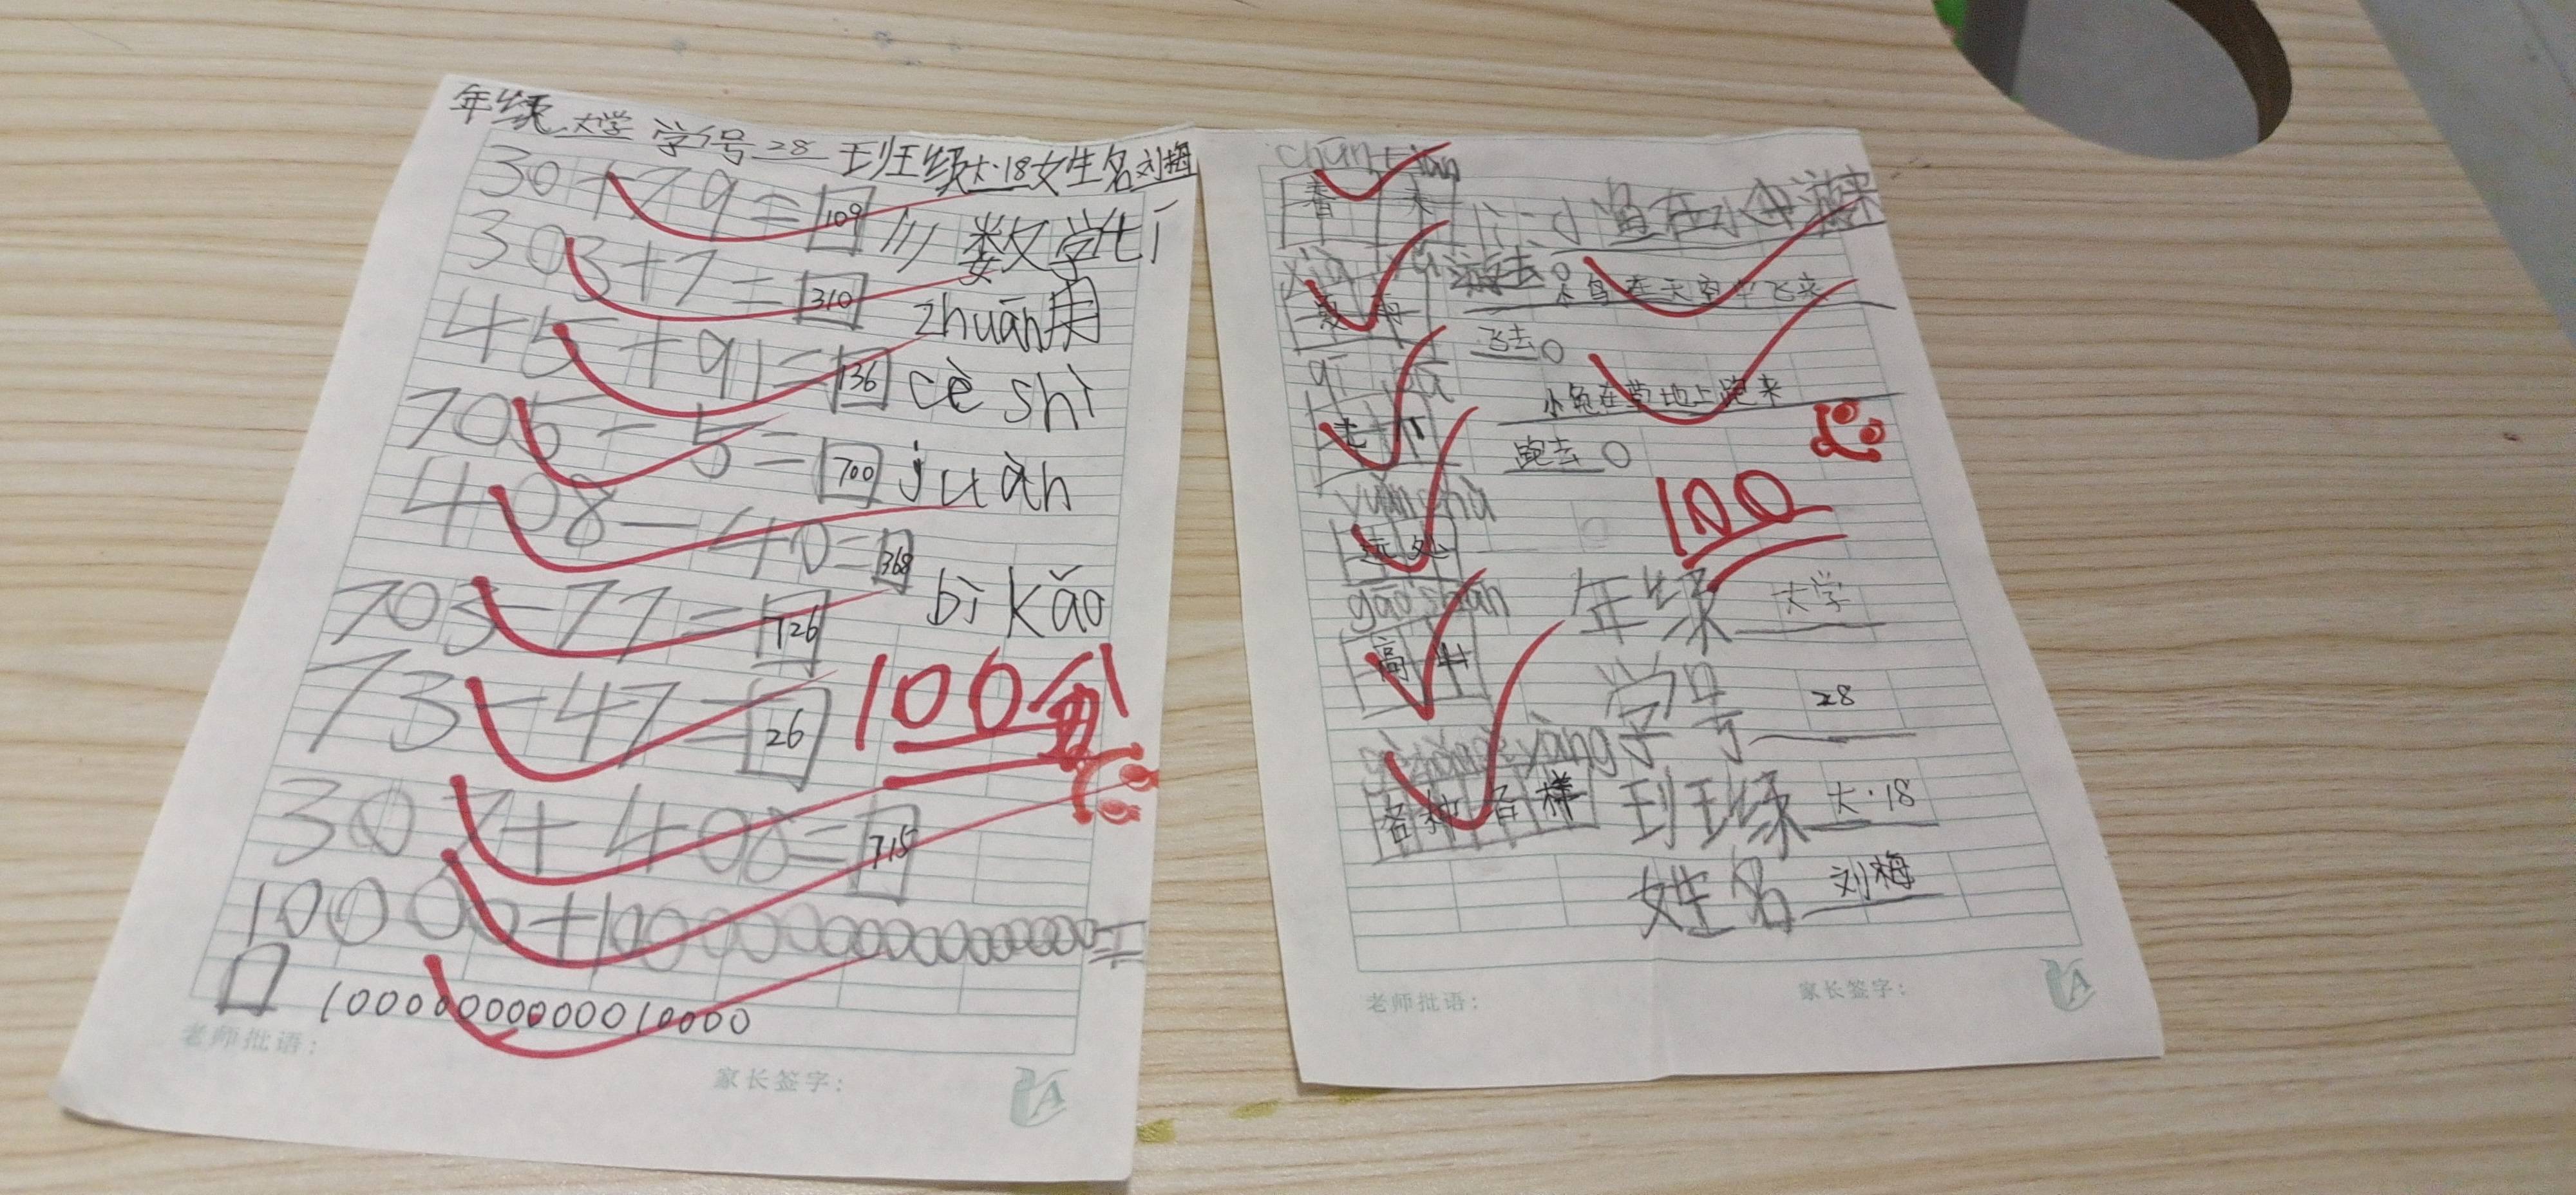 年级 大学 学号 28 班级 大·18 姓名 刘梅
30+79=109
303+7=310
45+91=136
705-5=700
408-40=368
703-77=726
73-47=26
307+408=715
1000000000010000
老师批语:
家长签字:
数学
zhuān用
cè shì
juàn
bì kǎo
100分
chūn tiān
春天
游去。
小鸟在天空中飞来
飞去。
小兔在草地上跑来
跑去。
远处
gāo shān
高山
各种各样
100
年级 大学
学号 28
班级 大·18
姓名 刘梅
老师批语:
家长签字: